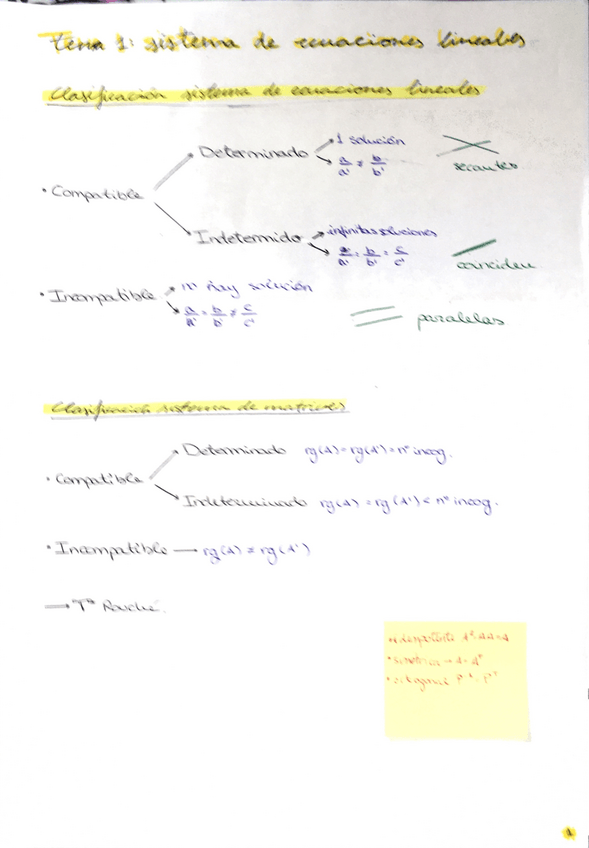 Tema 1: sistema de ecuaciones lineales
Clasificación sistema de ecuaciones lineales
Determinado → 1 solución
a/a' ≠ b/b'
secantes
• Compatible
Indetermido → infinitas soluciones
a/a' = b/b' = c/c'
coinciden
• Incompatible → no hay solución
a/a' = b/b' ≠ c/c'
paralelas
Clasificación sistema de matrices
Determinado rg(A) = rg(A') = nº incog.
• Compatible
Indeterminado rg(A) = rg(A') < nº incog.
• Incompatible → rg(A) ≠ rg(A')
→ Tª Rouché.
A²=AA=A
• simétrica → A=Aᵗ
• ortogonal P⁻¹=Pᵗ
1